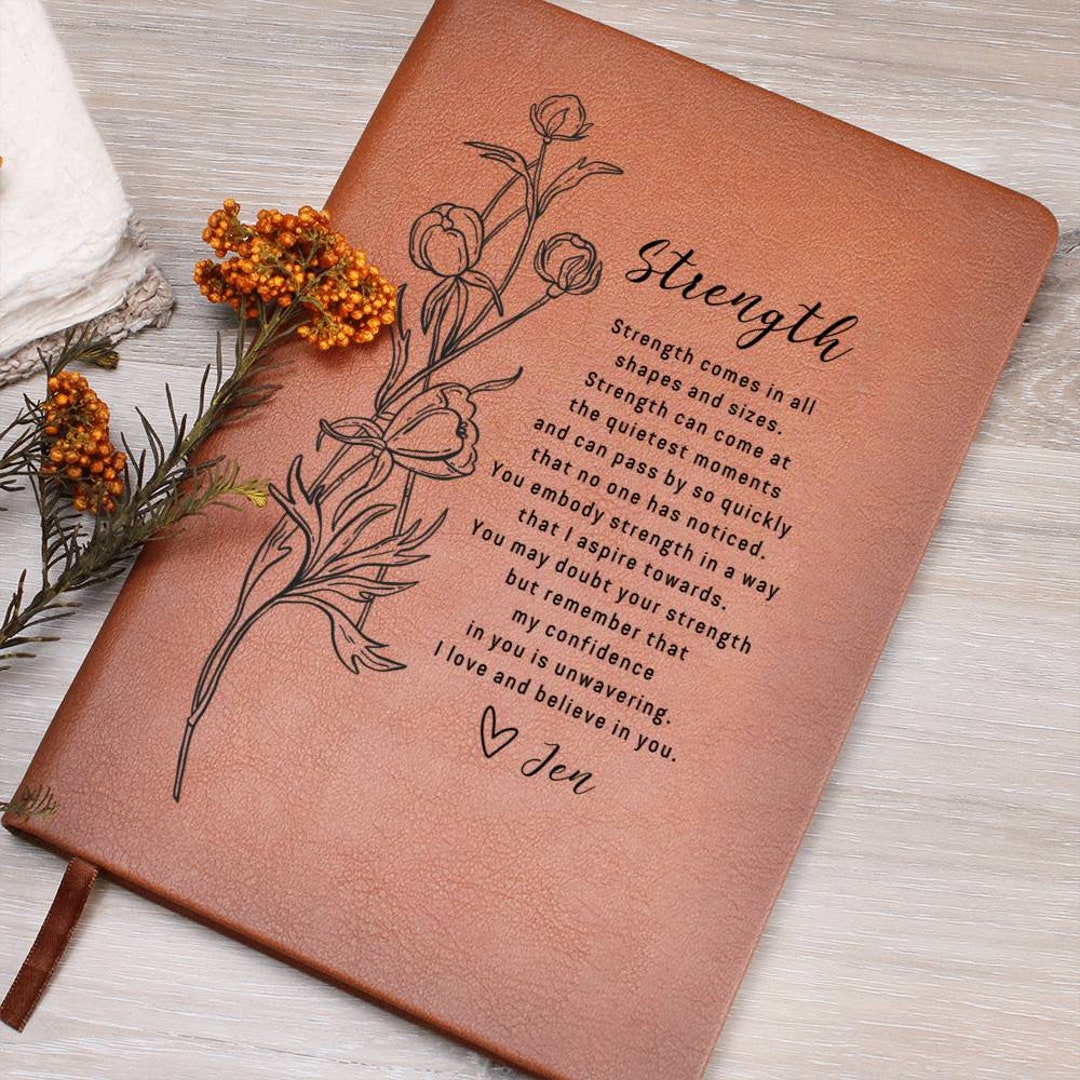 Strength
Strength comes in all
shapes and sizes.
Strength can come at
the quietest moments
and can pass by so quickly
that no one has noticed.
You embody strength in a way
that I aspire towards.
You may doubt your strength
but remember that
my confidence
in you is unwavering.
I love and believe in you.
Jen